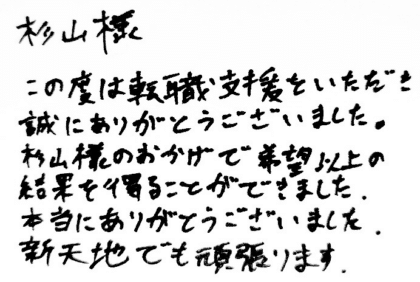 杉山様
この度は転職支援をいただき
誠にありがとうございました。
杉山様のおかげで希望以上の
結果を得ることができました.
本当にありがとうございました.
新天地でも頑張ります.